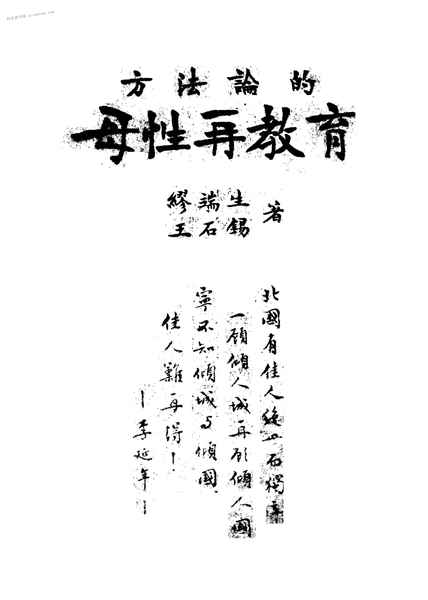 方法論的
母性再教育
繆端生
王石錫
著
北國有佳人絕世而獨立
一顧傾人城再顧傾人國
寧不知傾城与傾國
佳人難再得！
—李延年—